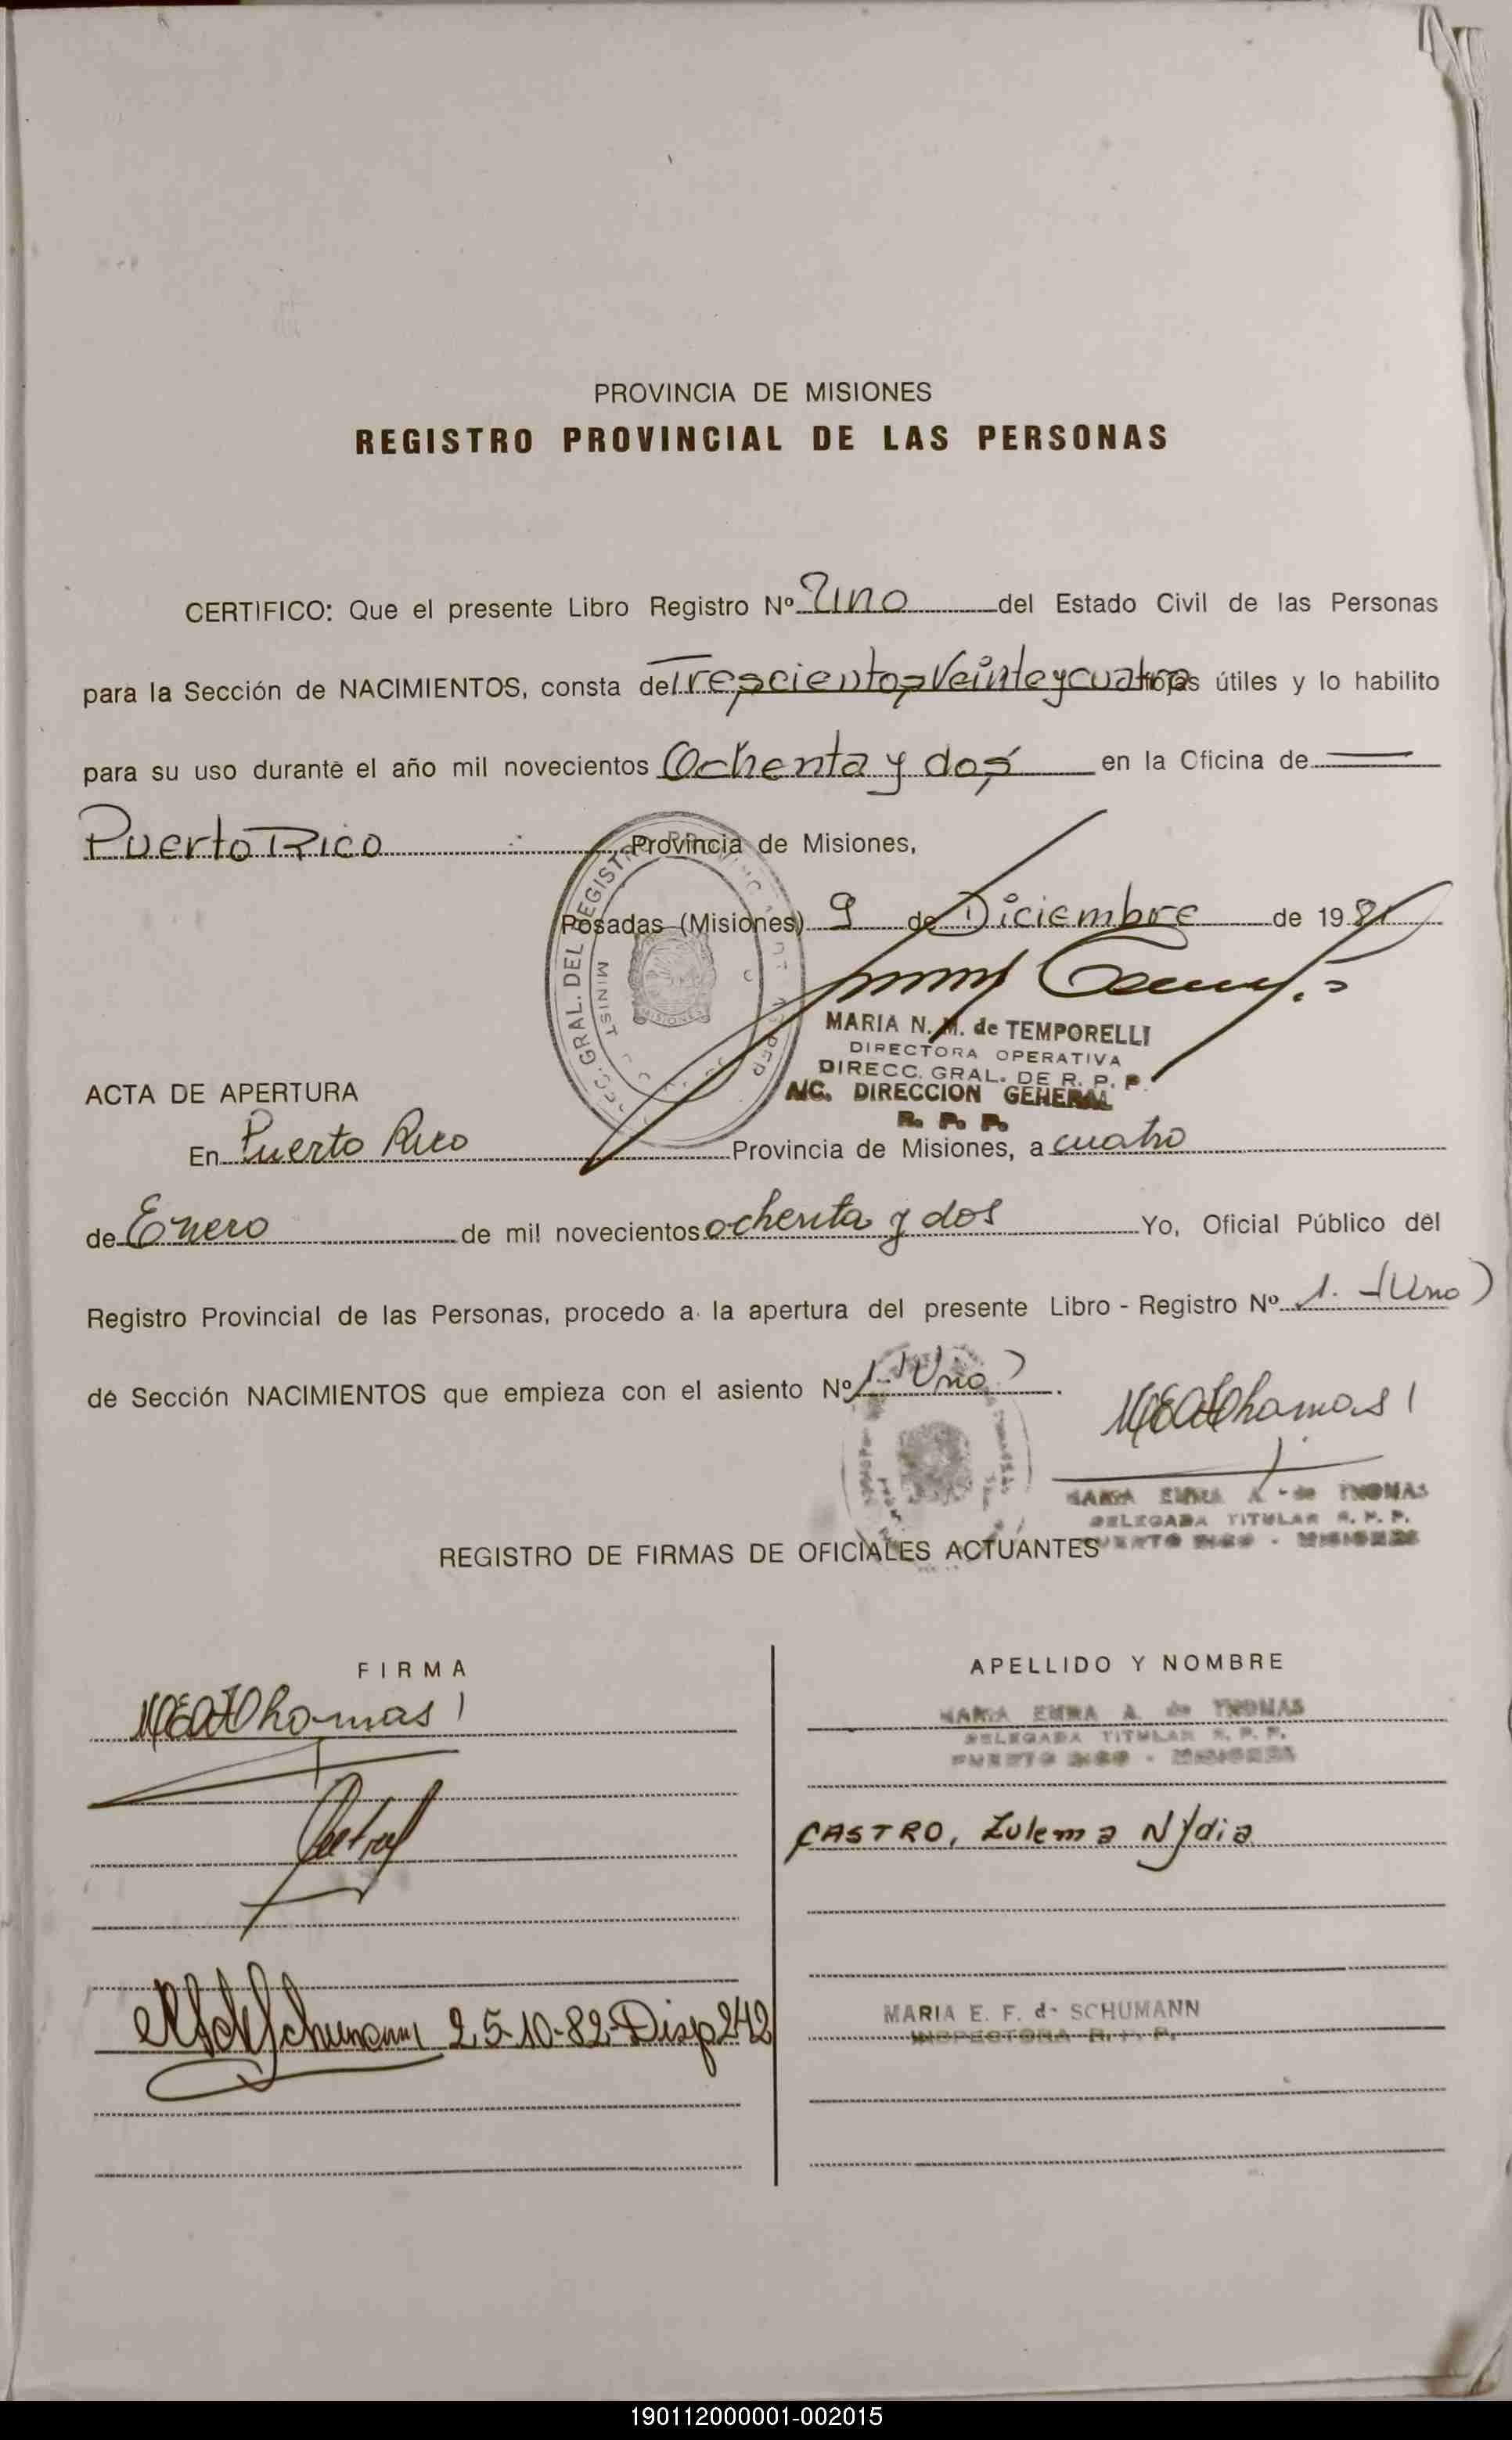 PROVINCIA DE MISIONES
REGISTRO PROVINCIAL DE LAS PERSONAS
CERTIFICO: Que el presente Libro Registro Nº Uno del Estado Civil de las Personas
para la Sección de NACIMIENTOS, consta de Trescientos Veinte y cuatro hojas útiles y lo habilito
para su uso durante el año mil novecientos Ochenta y dos en la Oficina de
Puerto Rico Provincia de Misiones,
Posadas (Misiones) 9 de Diciembre de 1981
GRAL. DEL REGISTRO
MINIST
MISIONES
MARIA N. M. de TEMPORELLI
DIRECTORA OPERATIVA
DIRECC. GRAL. DE R. P. P.
A/C. DIRECCION GENERAL
R. P. P.
ACTA DE APERTURA
En Puerto Rico Provincia de Misiones, a cuatro
de Enero de mil novecientos ochenta y dos Yo, Oficial Público del
Registro Provincial de las Personas, procedo a la apertura del presente Libro - Registro Nº 1. (Uno)
de Sección NACIMIENTOS que empieza con el asiento Nº 1- (Uno)
MARIA EMMA A. de THOMAS
DELEGADA TITULAR R. P. P.
PUERTO RICO - MISIONES
REGISTRO DE FIRMAS DE OFICIALES ACTUANTES
FIRMA APELLIDO Y NOMBRE
MARIA EMMA A. de THOMAS
DELEGADA TITULAR R. P. P.
PUERTO RICO - MISIONES
CASTRO, Zulema Nydia
25-10-82-Disp 242
MARIA E. F. de SCHUMANN
INSPECTORA R. P. P.
190112000001-002015